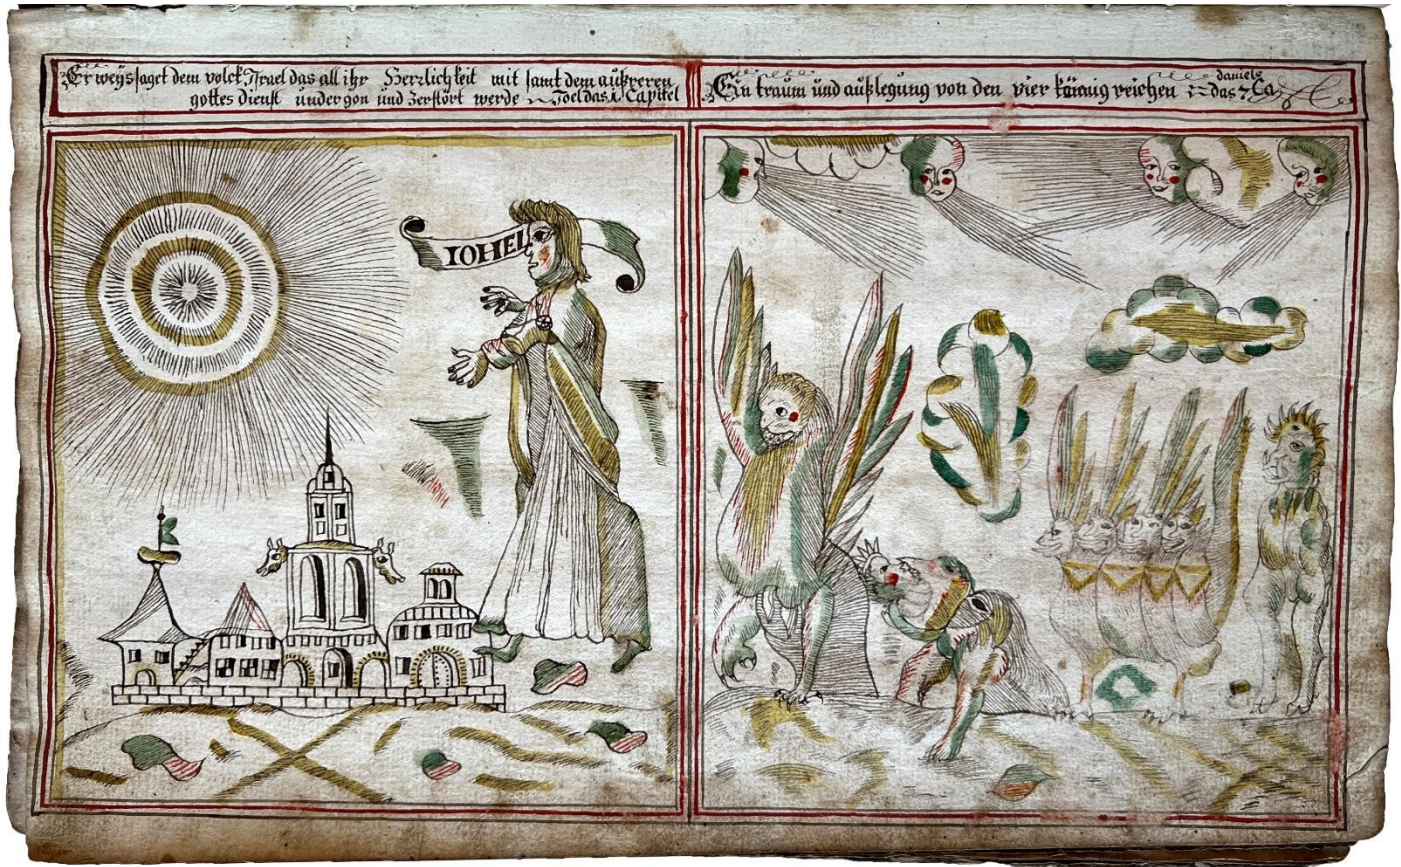 Er weysaget dem volck Jsrael das all ihr Herlichkeit mit samt dem aüßreren
gottes dienst undergon und Zerstört werde Joel das 1 Capitel
Ein traum und außlegung von den vier könnig reichen das 7 Ca
daniels
IOHEL